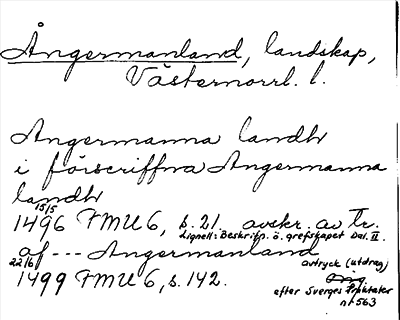 Ångermanland, landskap,
Västernorrl. l.
Angermanna landh
i förscriffna Angermanna
landh
15/5
1496 FMU 6, s. 21. avskr. av Tr.
Lignell: Beskrifn. ö. grefskapet Dal. II.
af --- Angermanland
22/6
1499 FMU 6, s. 142.
avtryck (utdrag)
efter Sverges Traktater
nr 563